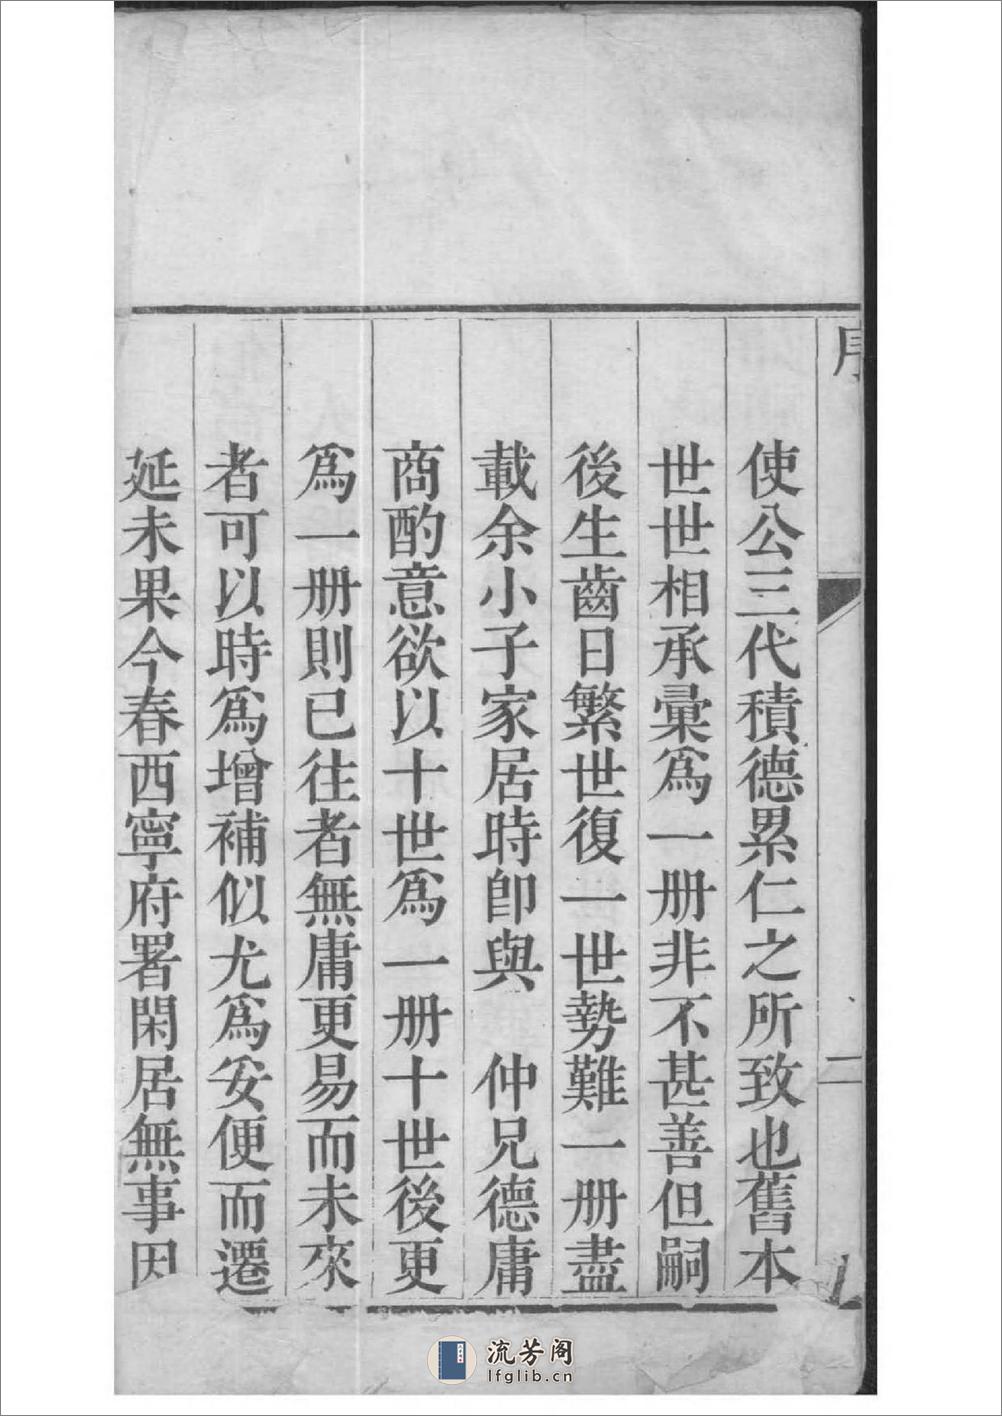 序
二
使公三代積德累仁之所致也舊本
世世相承彙爲一册非不甚善但嗣
後生齒日繁世復一世勢難一册盡
載余小子家居時卽與　仲兄德庸
商酌意欲以十世爲一册十世後更
爲一册則已往者無庸更易而未來
者可以時爲增補似尤爲安便而遷
延未果今春西寧府署閑居無事因
流芳阁
lfglib.cn